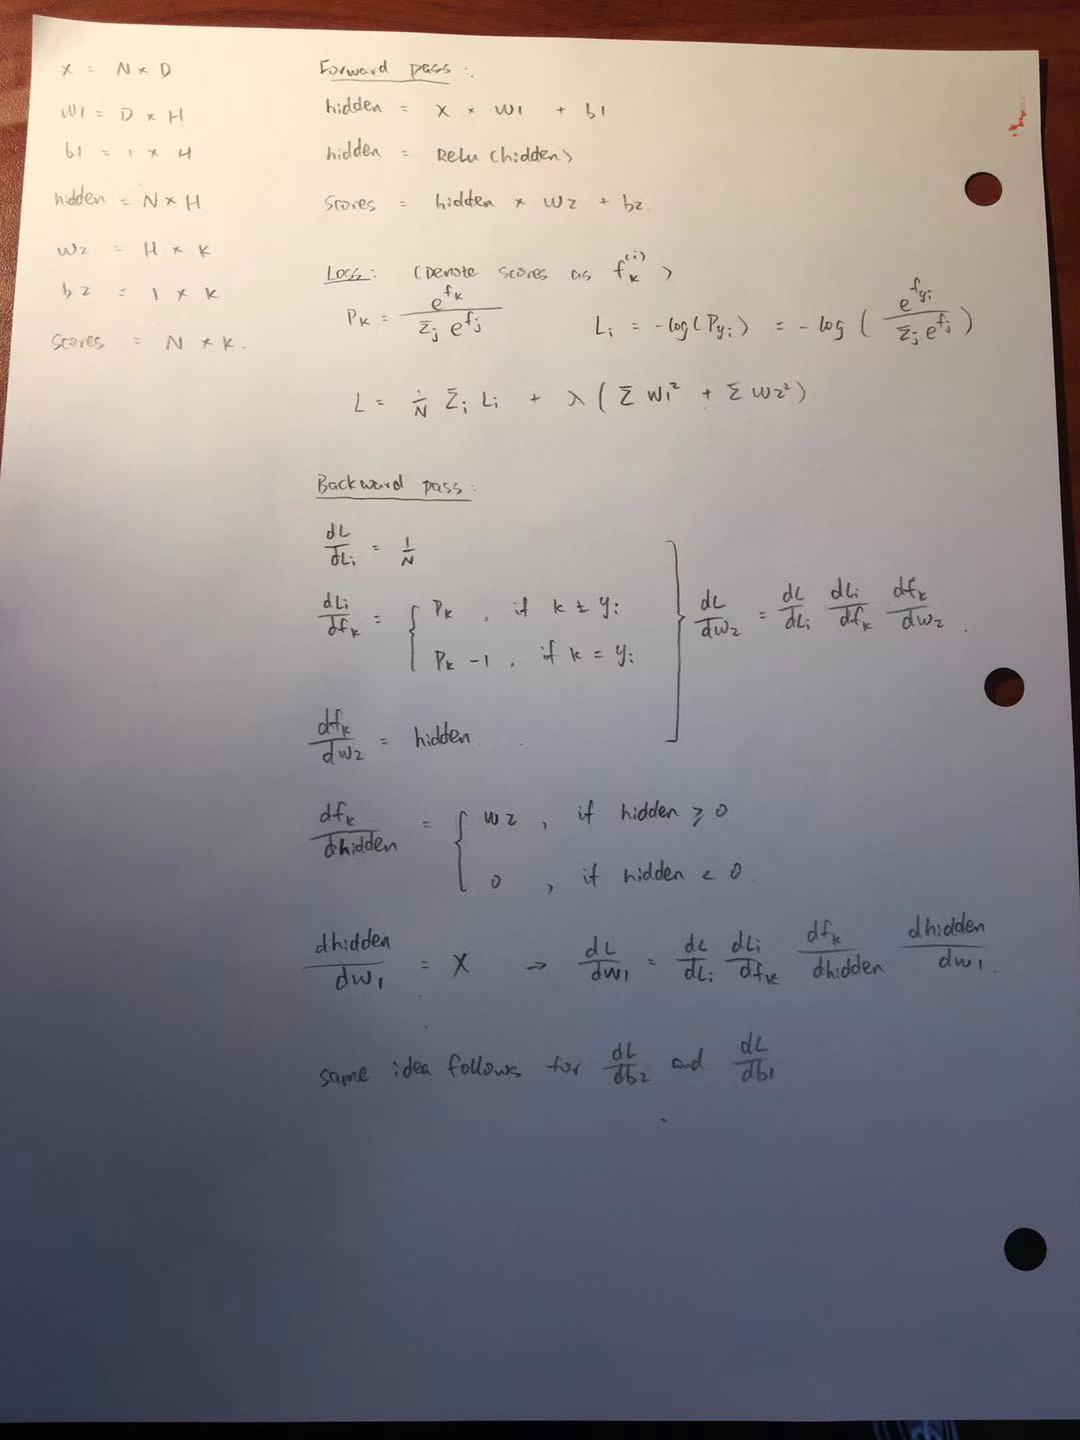 x = N × D
W1 = D × H
b1 = 1 × H
hidden = N × H
W2 = H × K
b2 = 1 × K
scores = N × K.
Forward pass:
hidden = X × W1 + b1
hidden = Relu (hidden)
scores = hidden × W2 + b2.
Loss: (Denote scores as f_k^(i))
P_k = e^{f_k} / Σ_j e^{f_j}    L_i = -log(P_{y_i}) = -log( e^{f_{y_i}} / Σ_j e^{f_j} )
L = 1/N Σ_i L_i + λ ( Σ W1² + Σ W2² )
Backward pass:
dL/dL_i = 1/N
dL_i/df_k = { P_k, if k ≠ y_i
P_k - 1, if k = y_i
} dL/dW2 = dL/dL_i dL_i/df_k df_k/dW2.
df_k/dW2 = hidden.
df_k/dhidden = { W2, if hidden ≥ 0
0, if hidden < 0.
dhidden/dW1 = X → dL/dW1 = dL/dL_i dL_i/df_k df_k/dhidden dhidden/dW1.
same idea follows for dL/db2 and dL/db1